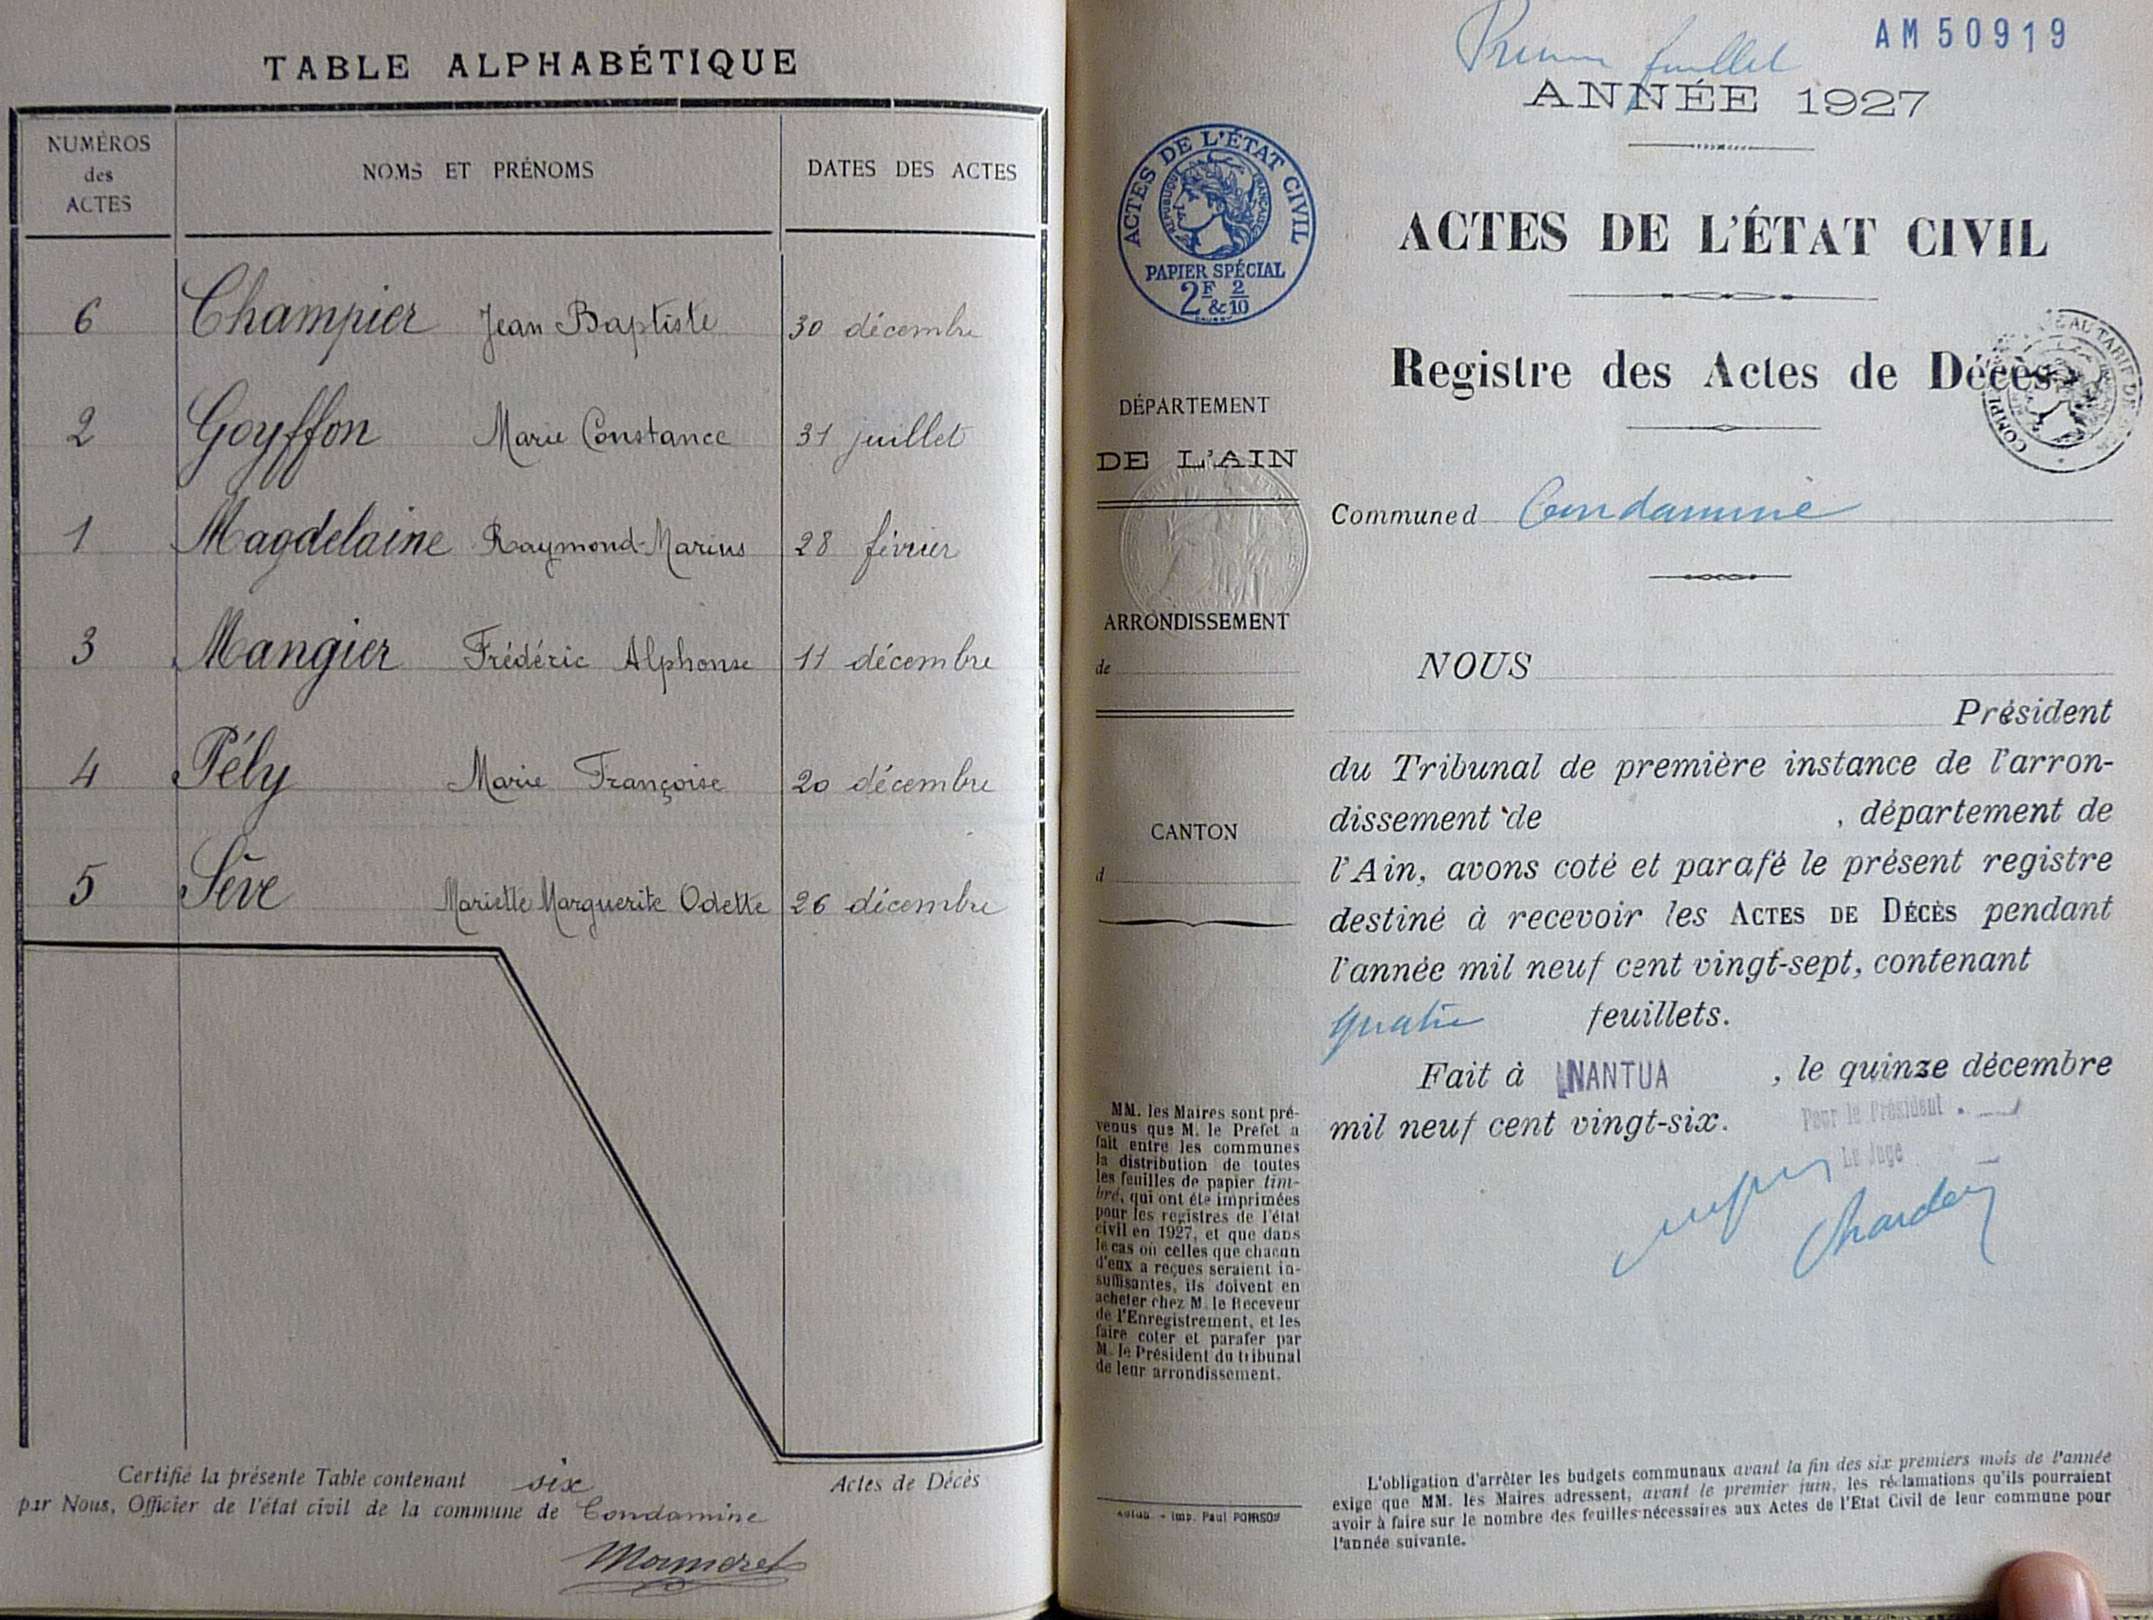 TABLE ALPHABÉTIQUE
NUMÉROS
des
ACTES
NOMS ET PRÉNOMS
DATES DES ACTES
6 Champier Jean Baptiste 30 décembre
2 Goyffon Marie Constance 31 juillet
1 Magdelaine Raymond-Marius 28 février
3 Mangier Frédéric Alphonse 11 décembre
4 Pély Marie Françoise 20 décembre
5 Sève Marielle Marguerite Odette 26 décembre
Certifié la présente Table contenant six Actes de Décès
par Nous, Officier de l'état civil de la commune de Condamine
AM 50919
feuillet
ANNÉE 1927
ACTES DE L'ÉTAT CIVIL
RÉPUBLIQUE FRANÇAISE
PAPIER SPÉCIAL
2F & 2/10
ACTES DE L'ÉTAT CIVIL
Registre des Actes de Décès
DÉPARTEMENT
DE L'AIN
Commune d Condamine
ARRONDISSEMENT
de
CANTON
d
NOUS
Président
du Tribunal de première instance de l'arron-
dissement de , département de
l'Ain, avons coté et parafé le présent registre
destiné à recevoir les ACTES DE DÉCÈS pendant
l'année mil neuf cent vingt-sept, contenant
quatre feuillets.
Fait à NANTUA , le quinze décembre
mil neuf cent vingt-six.
Pour le Président
Le Juge
MM. les Maires sont pré-
venus que M. le Préfet a
fait entre les communes
la distribution de toutes
les feuilles de papier tim-
bré, qui ont été imprimées
pour les registres de l'état
civil en 1927, et que dans
le cas où celles que chacun
d'eux a reçues seraient in-
suffisantes, ils doivent en
acheter chez M. le Receveur
de l'Enregistrement, et les
faire coter et parafer par
M. le Président du tribunal
de leur arrondissement.
Imp. Paul POIRSON
L'obligation d'arrêter les budgets communaux avant la fin des six premiers mois de l'année
exige que MM. les Maires adressent, avant le premier juin, les réclamations qu'ils pourraient
avoir à faire sur le nombre des feuilles nécessaires aux Actes de l'Etat Civil de leur commune pour
l'année suivante.